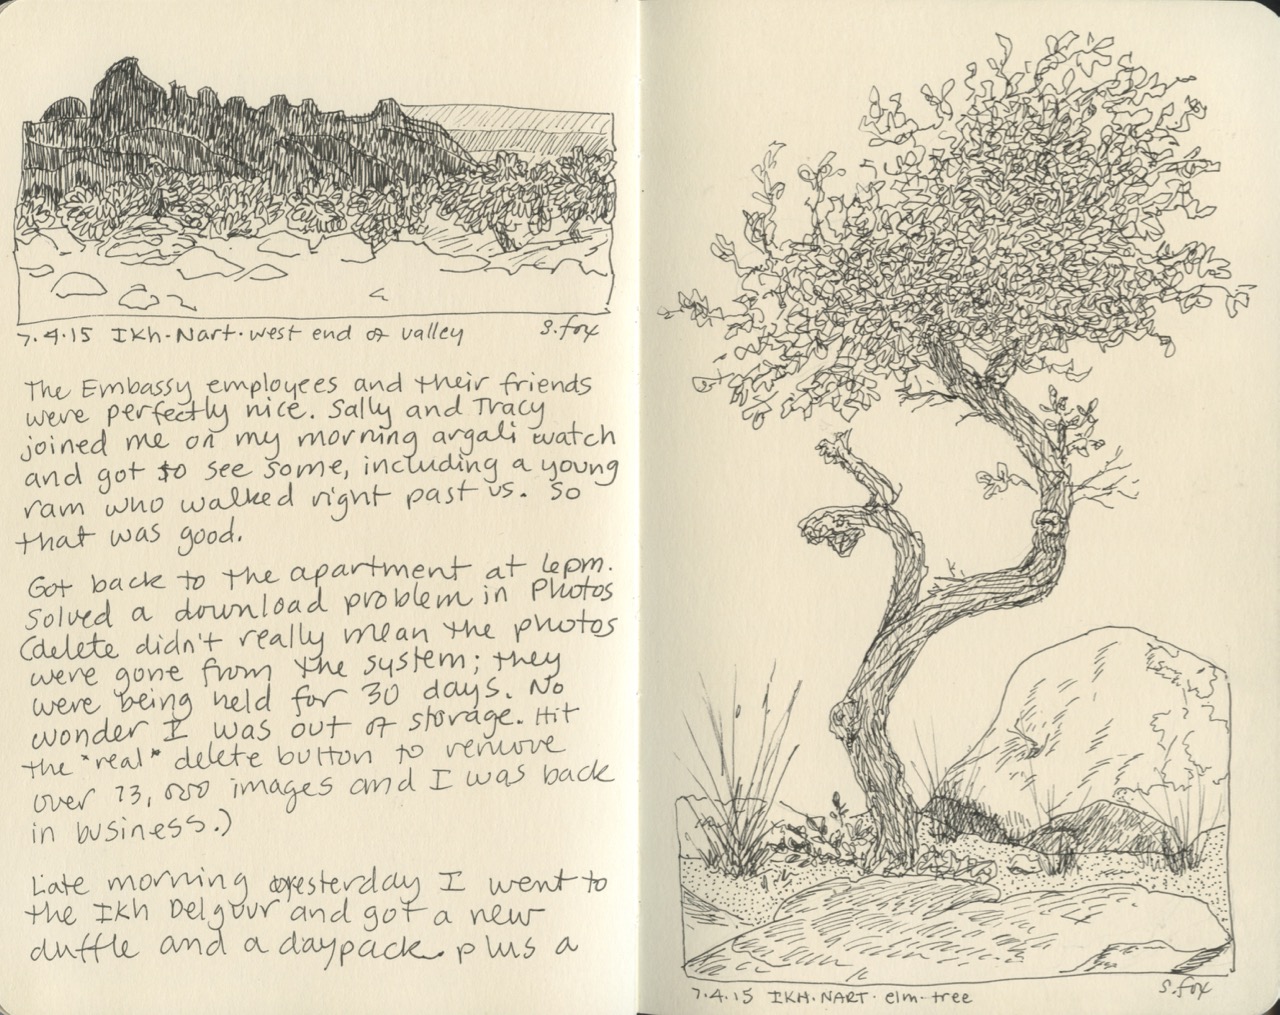 7.4.15 Ikh·Nart·west end of valley S.fox
The Embassy employees and their friends
were perfectly nice. Sally and Tracy
joined me on my morning argali watch
and got to see some, including a young
ram who walked right past us. So
that was good.
Got back to the apartment at 6pm.
Solved a download problem in Photos
(delete didn't really mean the photos
were gone from the system; they
were being held for 30 days. No
wonder I was out of storage. Hit
the "real" delete button to remove
over 13,000 images and I was back
in business.)
Late morning yesterday I went to
the Ikh Delguur and got a new
duffle and a daypack. plus a
7.4.15 IKH·NART·elm·tree S.fox